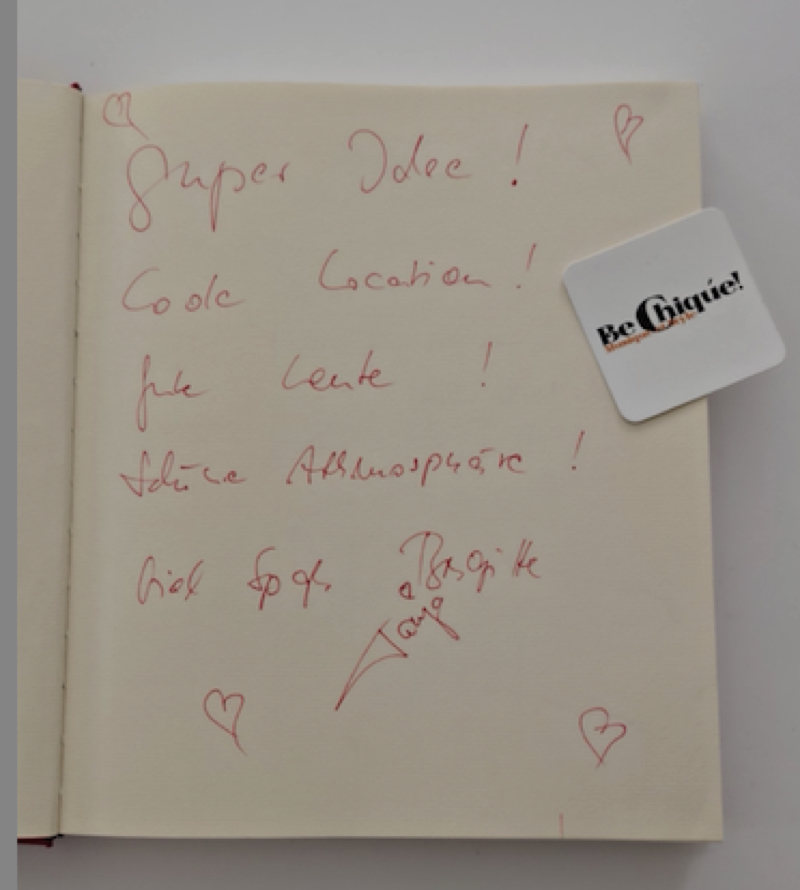 Super Idee !
Coole Location !
gute Leute !
schöne Athmosphäre !
Viel Spaß Brigitte
Tanja
Be Chiqúe!